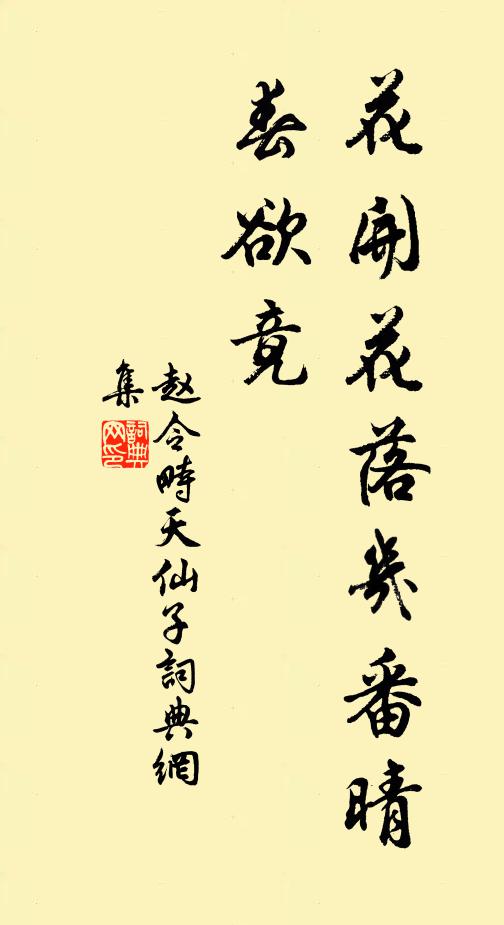 花開花落幾番晴
春欲竟
赵令畤天仙子詞典網
集
詞典
网印